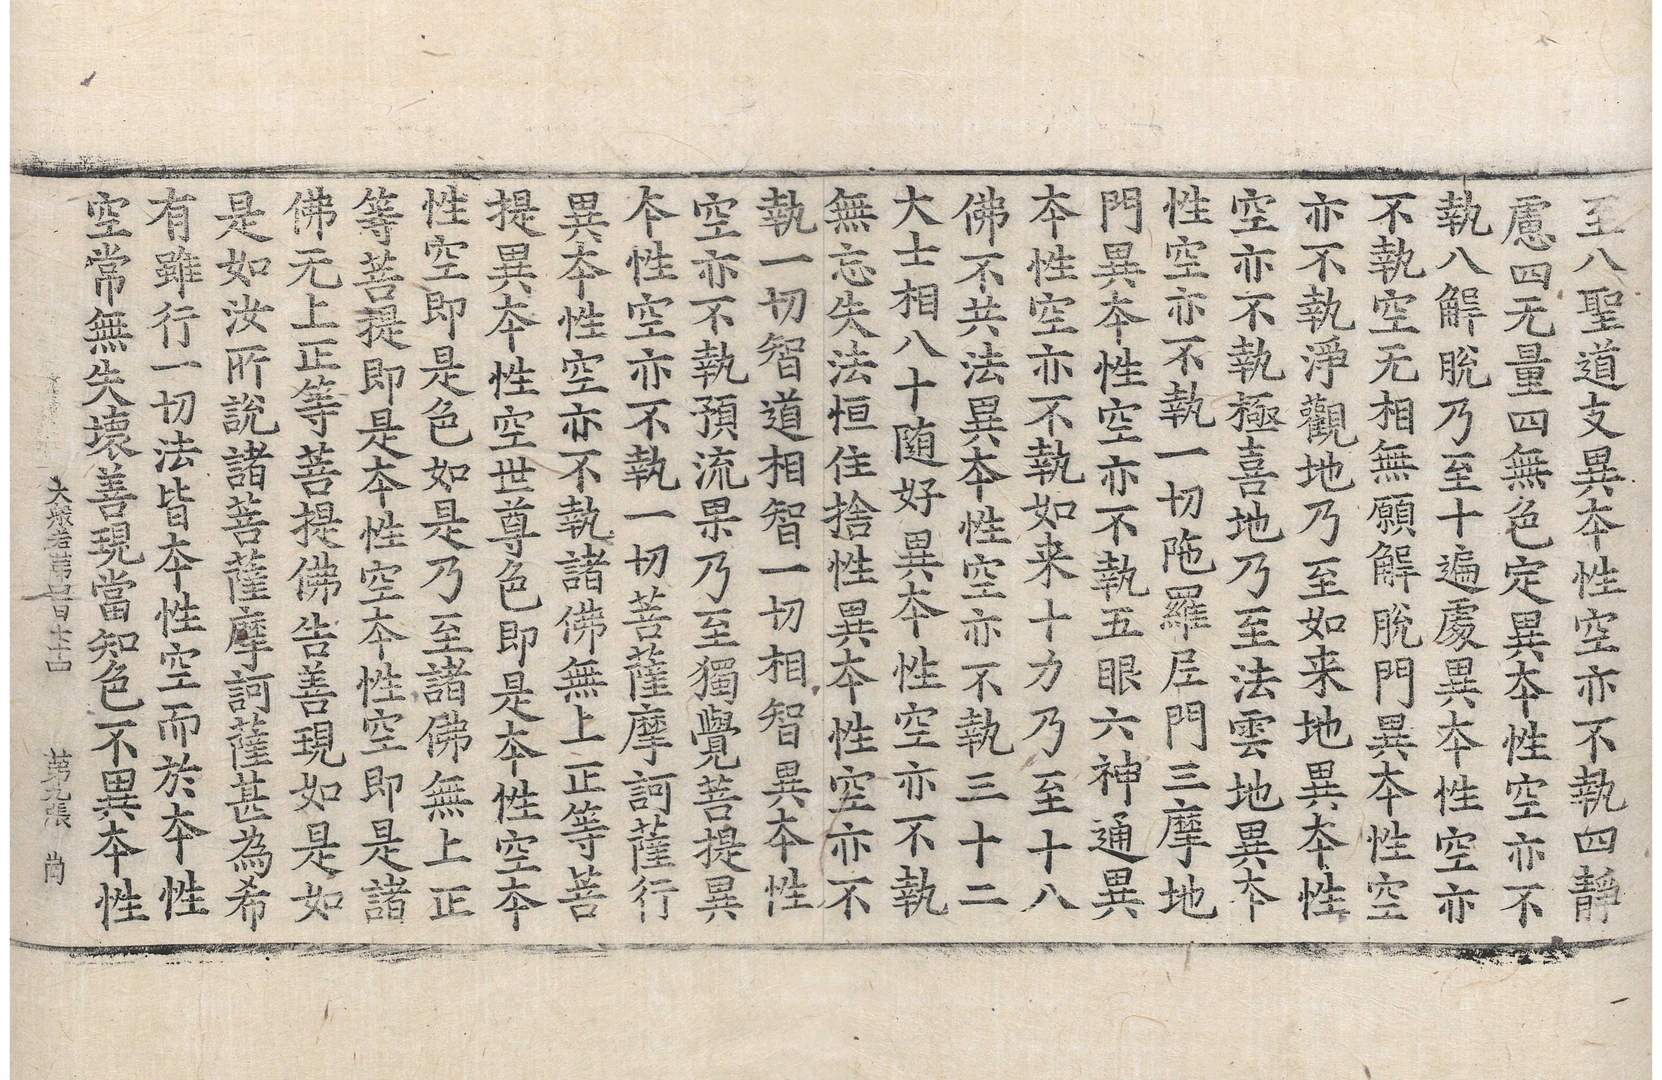 至八聖道支異夲性空亦不執四靜
慮四无量四無色定異夲性空亦不
執八解脫乃至十遍處異夲性空亦
不執空无相無願解脫門異夲性空
亦不執淨觀地乃至如来地異夲性
空亦不執極喜地乃至法雲地異夲
性空亦不執一切陁羅𡰱門三摩地
門異夲性空亦不執五眼六神通異
夲性空亦不執如来十力乃至十八
佛不共法異夲性空亦不執三十二
大士相八十随好異夲性空亦不執
無忘失法恒住捨性異夲性空亦不
執一切智道相智一切相智異夲性
空亦不執預流果乃至獨覺菩提異
夲性空亦不執一切菩薩摩訶薩行
異夲性空亦不執諸佛無上正等菩
提異夲性空世尊色即是夲性空夲
性空即是色如是乃至諸佛無上正
等菩提即是夲性空夲性空即是諸
佛无上正等菩提佛告善現如是如
是如汝所說諸菩薩摩訶薩甚為希
有雖行一切法皆夲性空而於夲性
空常無失壞善現當知色不異夲性
大般若第四百七十四 第九張 尚